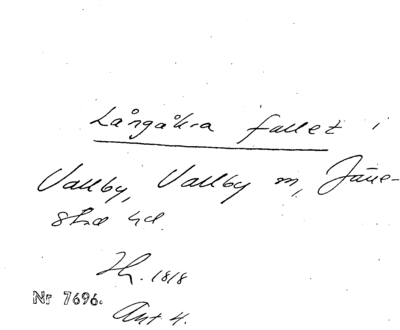 Långåkra fallet i
Vallby, Vallby m, Järre-
stad hd.
Th. 1818
Nr 7696.
Ant 4.